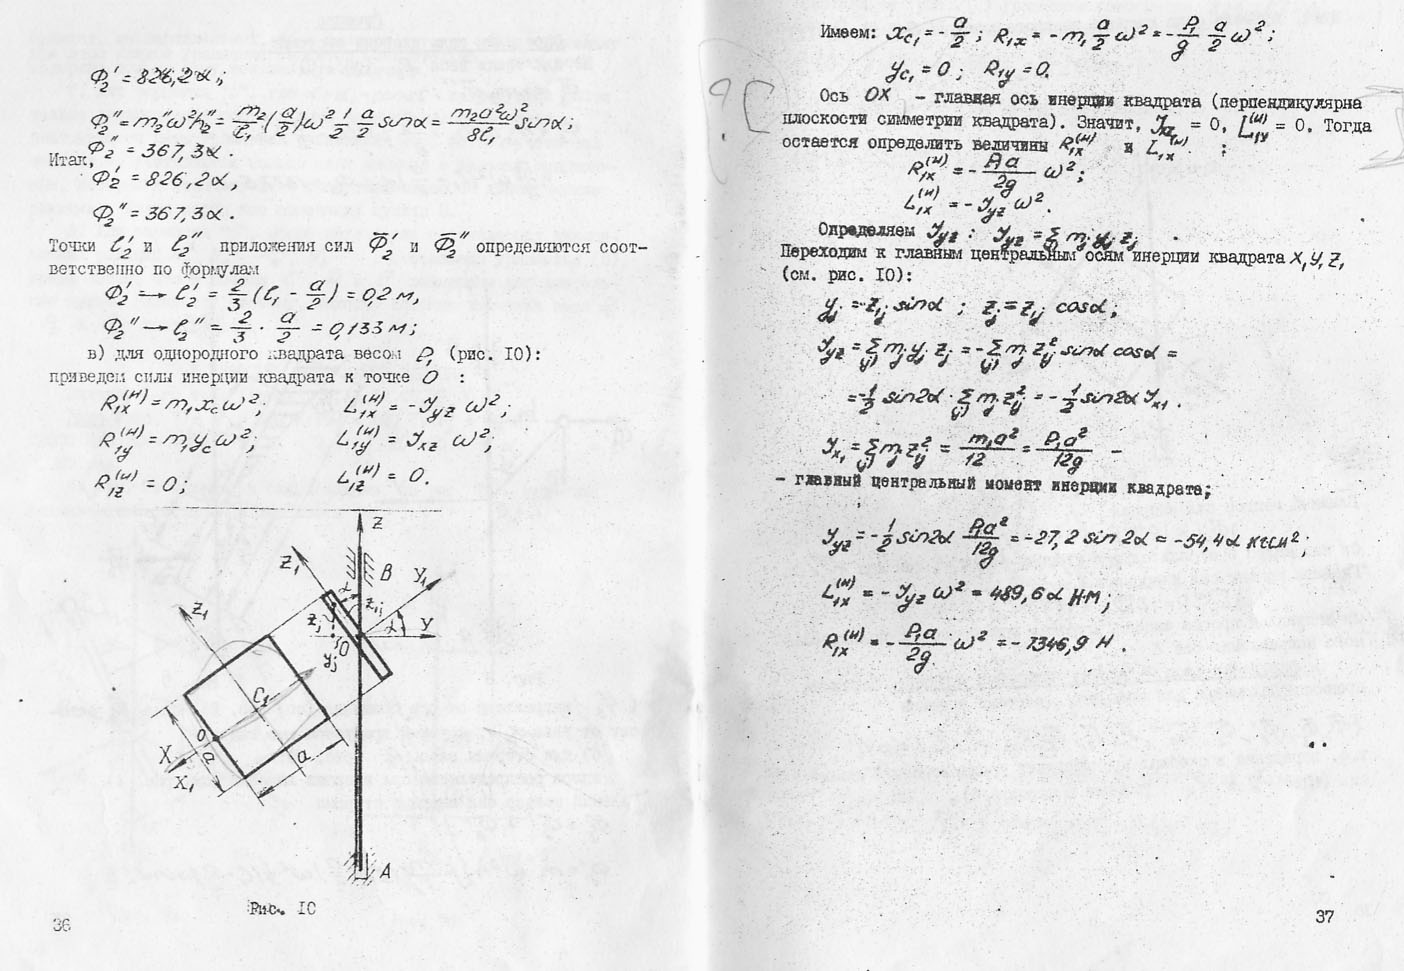 Φ₂' = 826,2α ;
Φ₂'' = m₂''ω²h₂'' = m₂/ℓ₁ (a/2) ω² 1/2 · a/2 sinα = m₂a²ω²/8ℓ₁ sinα ;
Φ₂'' = 367,3α .
Итак,
Φ₂' = 826,2α ,
Φ₂'' = 367,3α .
Точки ℓ₂' и ℓ₂'' приложения сил Φ̅₂' и Φ̅₂'' определяются соот-
ветственно по формулам
Φ₂' → ℓ₂' = 2/3 (ℓ₁ - a/2) = 0,2 м,
Φ₂'' → ℓ₂'' = 2/3 · a/2 = 0,133 м ;
в) для однородного квадрата весом P₁ (рис. 10):
приведем силы инерции квадрата к точке O :
R₁ₓ⁽ᴻ⁾ = m₁x_cω² ; L₁ₓ⁽ᴻ⁾ = -J_yz ω² ;
R₁y⁽ᴻ⁾ = m₁y_cω² ; L₁y⁽ᴻ⁾ = J_xz ω² ;
R₁z⁽ᴻ⁾ = 0 ; L₁z⁽ᴻ⁾ = 0 .
Z
Z₁ B Y₁
α
Z₁ z₁j
zj α Y
O
yj
C₁
O
X a a
X₁
A
Рис. 10
36
Имеем: x_c₁ = - a/2 ; R₁ₓ = -m₁ a/2 ω² = - P₁/g a/2 ω² ;
y_c₁ = 0 ; R₁y = 0.
Ось OX - главная ось инерции квадрата (перпендикулярна
плоскости симметрии квадрата). Значит, J_xz = 0, L₁y⁽ᴻ⁾ = 0. Тогда
остается определить величины R₁ₓ⁽ᴻ⁾ и L₁ₓ⁽ᴻ⁾ :
R₁ₓ⁽ᴻ⁾ = - P₁a/2g ω² ;
L₁ₓ⁽ᴻ⁾ = - J_yz ω² .
Определяем J_yz : J_yz = Σ mj yj zj .
Переходим к главным центральным осям инерции квадрата X₁ Y₁ Z₁
(см. рис. 10):
yj = -z₁j sinα ; zj = z₁j cosα ;
J_yz = Σ mj yj zj = - Σ mj z₁j² sinα cosα =
= - 1/2 sin2α · Σ mj z₁j² = - 1/2 sin2α Jx₁ .
Jx₁ = Σ mj z₁j² = m₁a²/12 = P₁a²/12g -
- главный центральный момент инерции квадрата;
J_yz = - 1/2 sin2α P₁a²/12g = -27,2 sin 2α = -54,4α кгсм² ;
L₁ₓ⁽ᴻ⁾ = - J_yz ω² = 489,6α Н·М ;
R₁ₓ⁽ᴻ⁾ = - P₁a/2g ω² = -7346,9 Н .
37